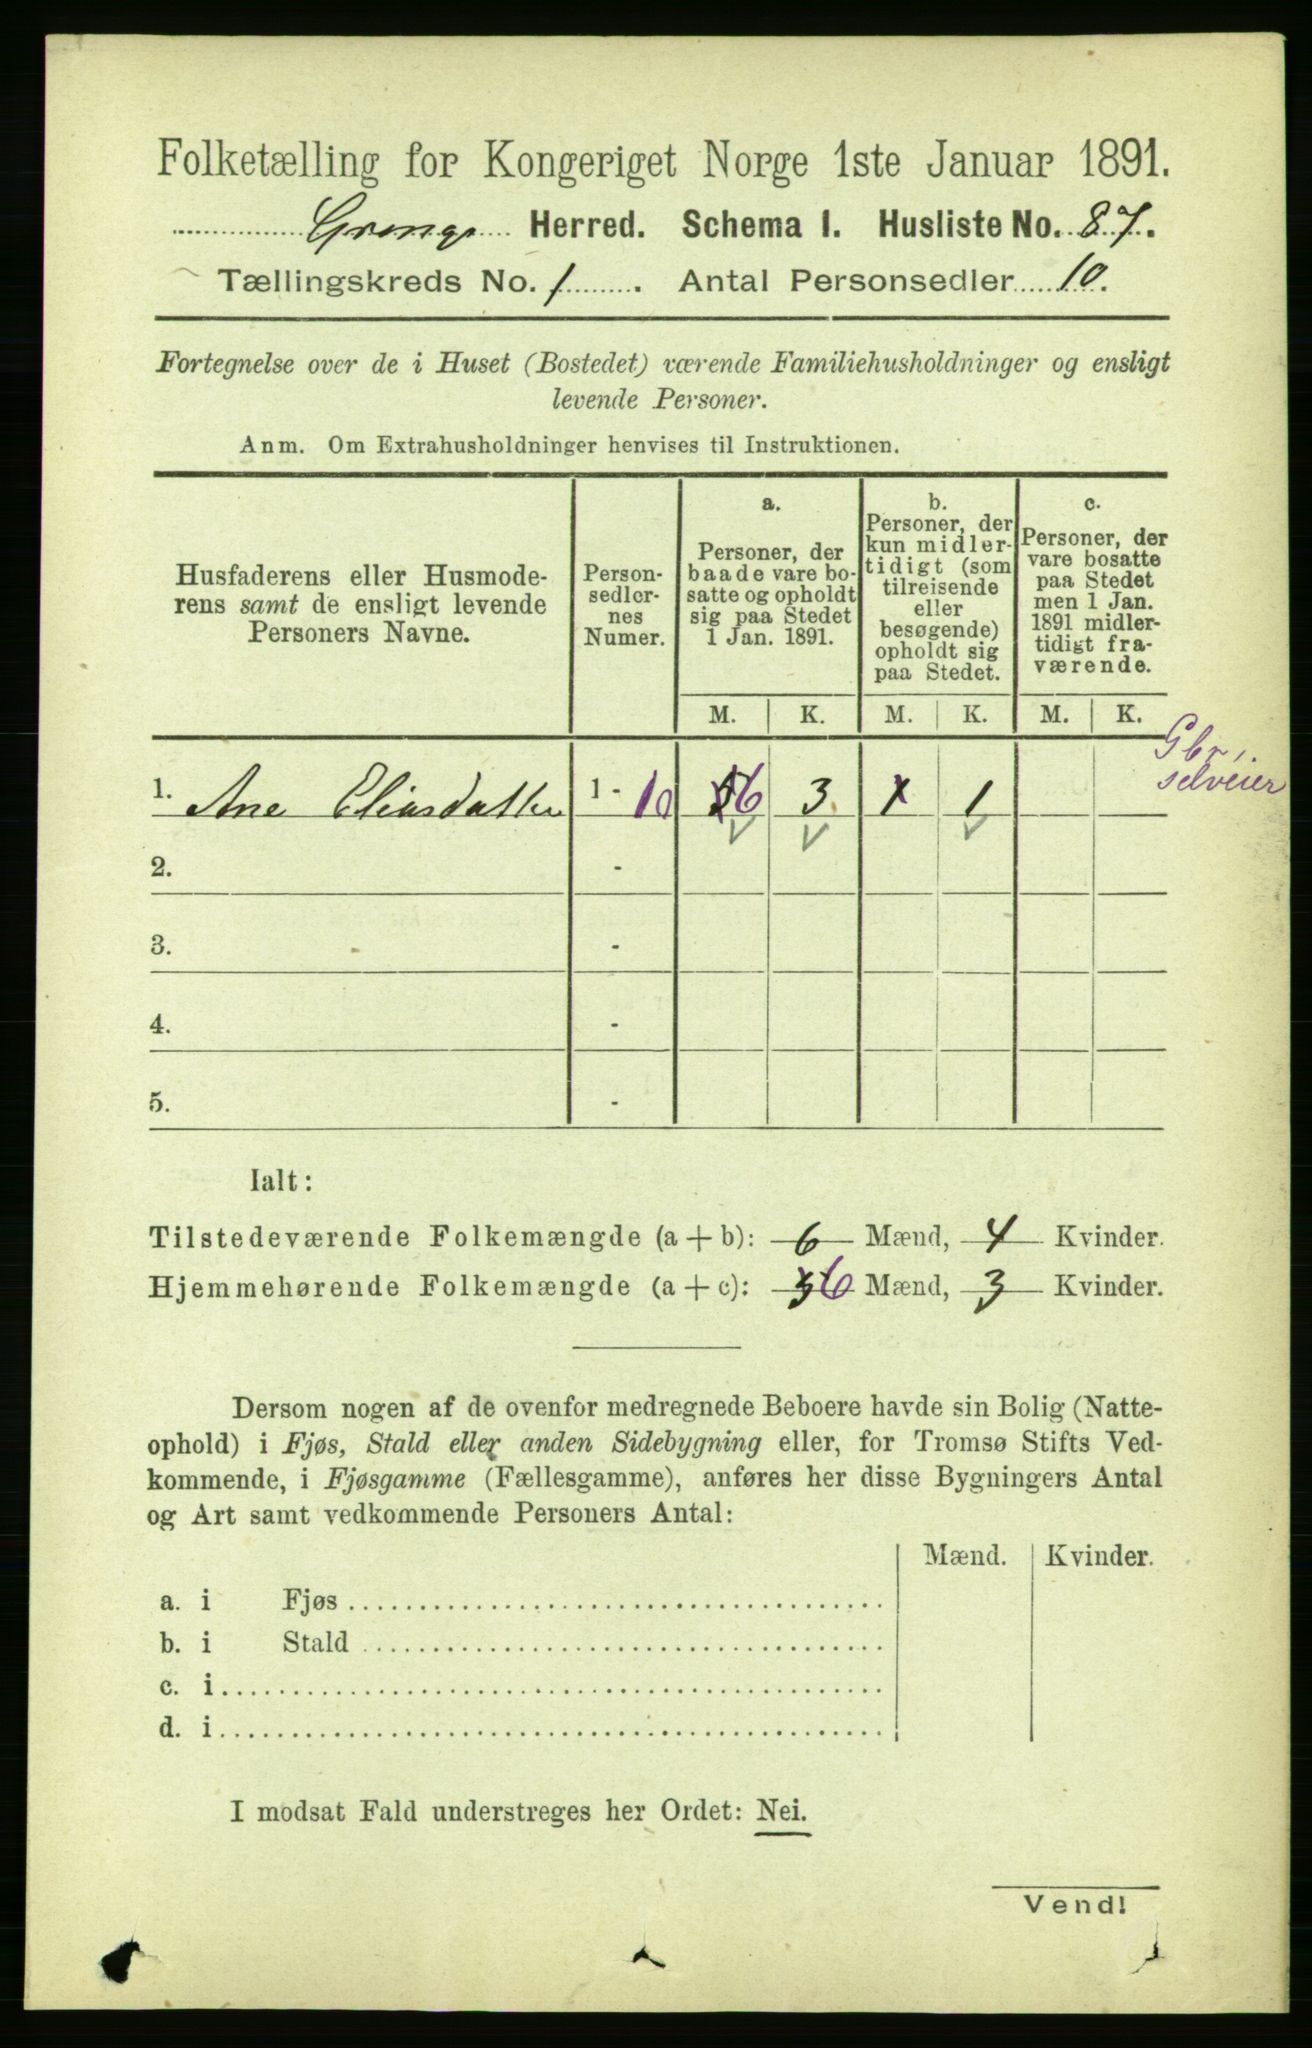 Folketælling for Kongeriget Norge 1ste Januar 1891.
Herred. Schema I. Husliste No. 87.
Tællingskreds No. 1. Antal Personsedler 10.
Fortegnelse over de i Huset (Bostedet) værende Familiehusholdninger og ensligt
levende Personer.
Anm. Om Extrahusholdninger henvises til Instruktionen.
Husfaderens eller Husmode-
rens samt de ensligt levende
Personers Navne.
Person-
sedler-
nes
Numer.
a.
Personer, der
baade vare bo-
satte og opholdt
sig paa Stedet
1 Jan. 1891.
b.
Personer, der
kun midler-
tidigt (som
tilreisende
eller
besøgende)
opholdt sig
paa Stedet.
c.
Personer, der
vare bosatte
paa Stedet
men 1 Jan.
1891 midler-
tidigt fra-
værende.
M. K. M. K. M. K.
Gbr,
selveier
1. Ane Eliasdatter 1 - 10 5 6 3 1 1
2. -
3. -
4. -
5. -
Ialt:
Tilstedeværende Folkemængde (a + b): 6 Mænd, 4 Kvinder.
Hjemmehørende Folkemængde (a + c): 5 6 Mænd, 3 Kvinder.
Dersom nogen af de ovenfor medregnede Beboere havde sin Bolig (Natte-
ophold) i Fjøs, Stald eller anden Sidebygning eller, for Tromsø Stifts Ved-
kommende, i Fjøsgamme (Fællesgamme), anføres her disse Bygningers Antal
og Art samt vedkommende Personers Antal:
Mænd. Kvinder.
a. i Fjøs
b. i Stald
c. i
d. i
I modsat Fald understreges her Ordet: Nei.
Vend!